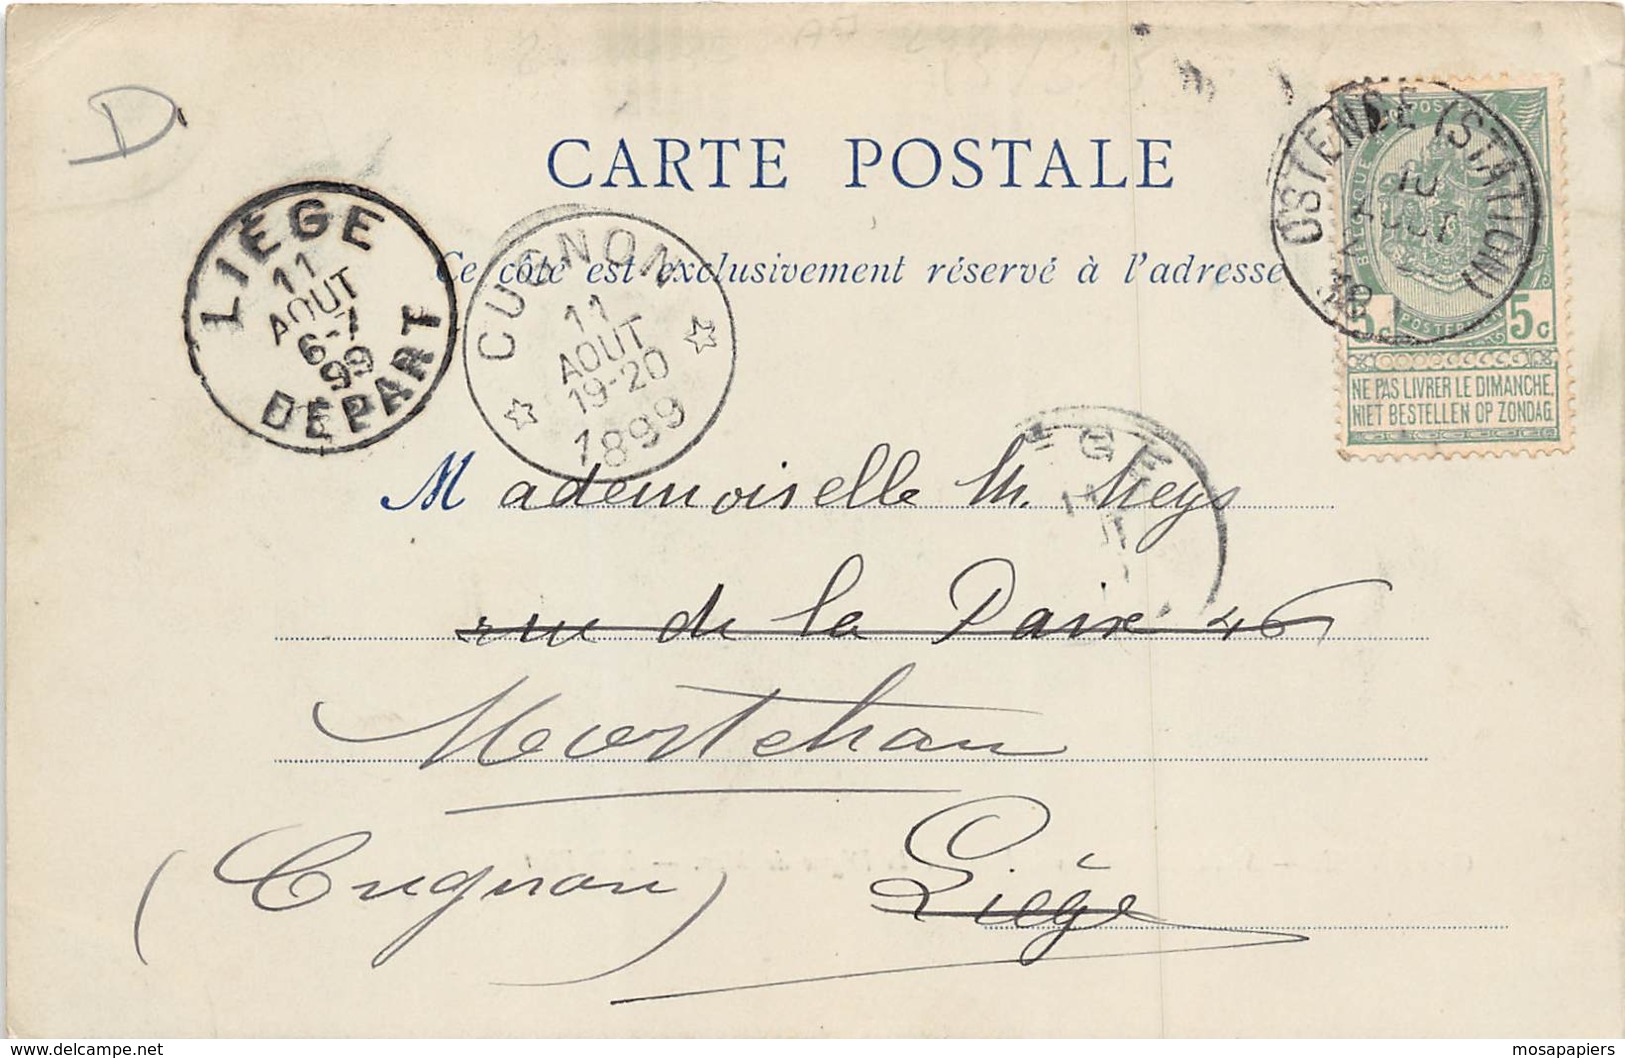 D
CARTE POSTALE
Ce côté est exclusivement réservé à l'adresse
OSTENDE (STATION)
10
AOUT
BELGIQUE
POSTES
POSTERIJEN
5c 5c
NE PAS LIVRER LE DIMANCHE,
NIET BESTELLEN OP ZONDAG.
LIÉGE
11
AOUT
6-7
99
DÉPART
CUGNON
11
AOUT
19-20
1899
GE
11
Mademoiselle M. Meys
rue de la Paix 46
Mortehan
(Cugnon) Liége
delcampe.net
mosapapiers